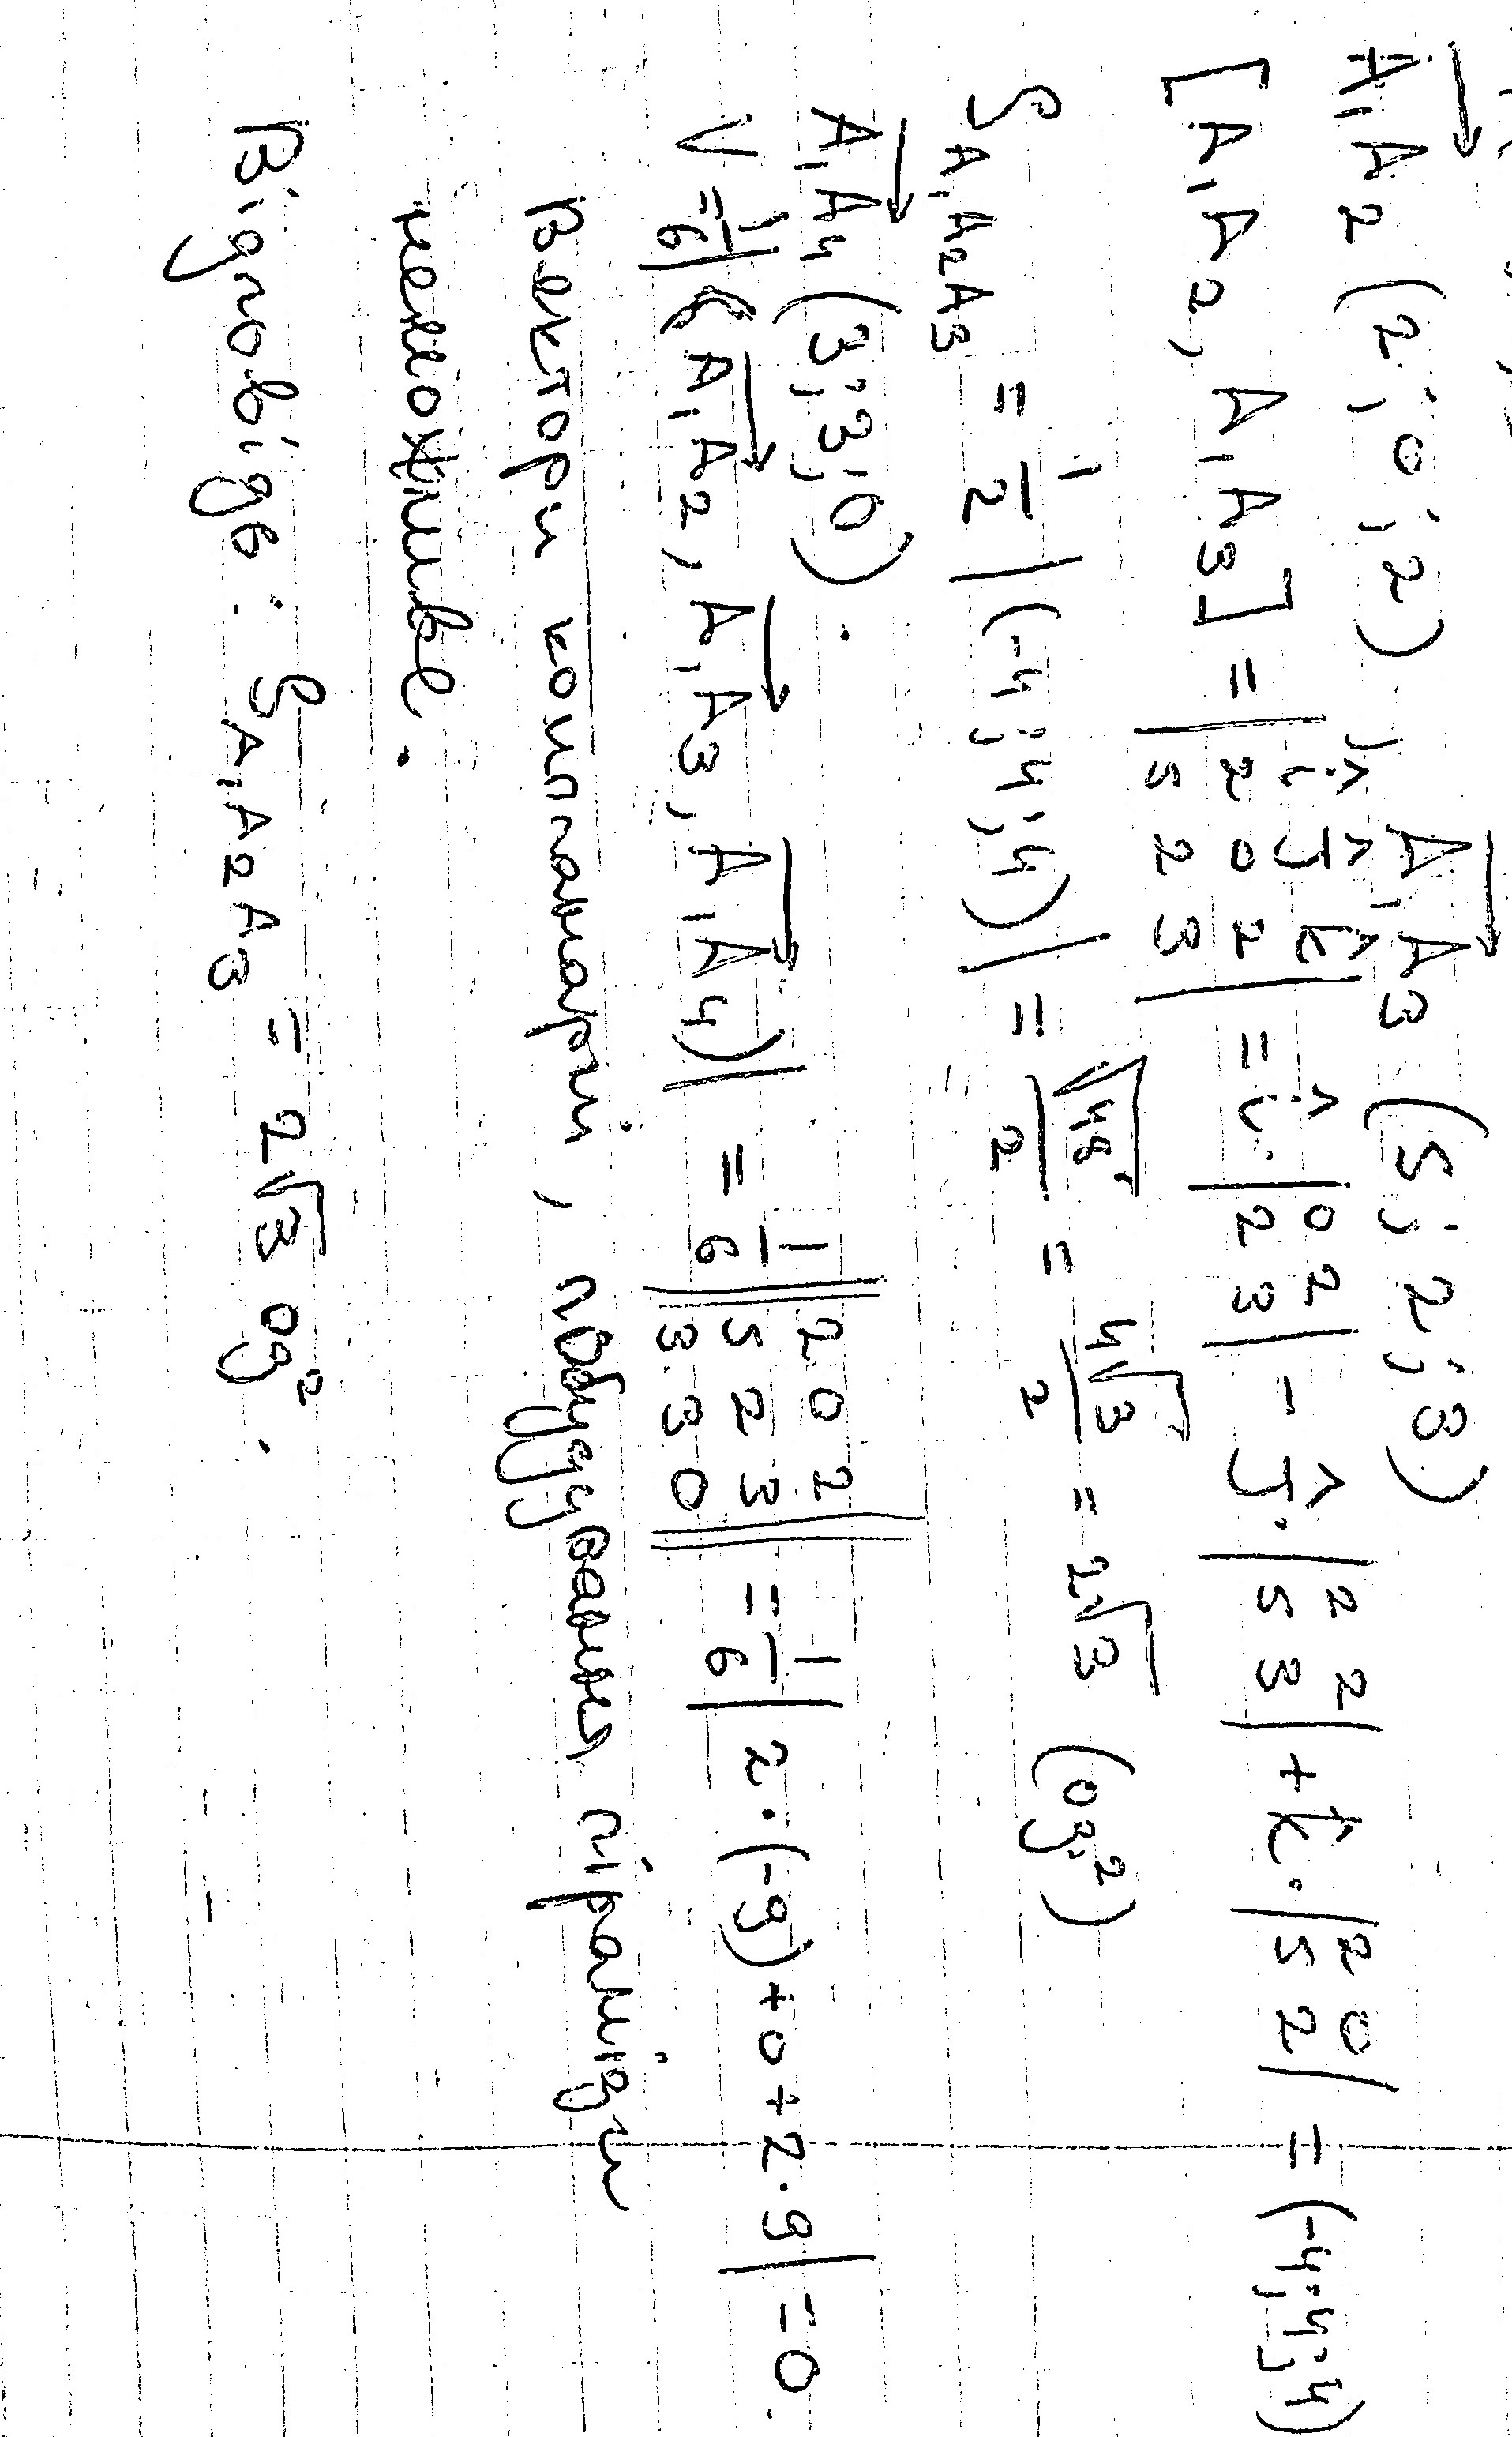 A₁A₂ (2; 0; 2), A₁A₃ (5; 2; 3)
[A₁A₂, A₁A₃] = | î ĵ k̂ ; 2 0 2 ; 5 2 3 | = î · | 0 2 ; 2 3 | - ĵ · | 2 2 ; 5 3 | + k̂ · | 2 0 ; 5 2 | = (-4; 4; 4)
S A₁A₂A₃ = 1/2 |(-4; 4; 4)| = √48/2 = 4√3/2 = 2√3 (од.²)
A₁A₄ (3; 3; 0).
V = 1/6 |(A₁A₂, A₁A₃, A₁A₄)| = 1/6 || 2 0 2 ; 5 2 3 ; 3 3 0 || = 1/6 | 2·(-9) + 0 + 2·9 | = 0.
Вектори компланарні, побудування піраміди
неможливе.
Відповідь: S A₁A₂A₃ = 2√3 од².